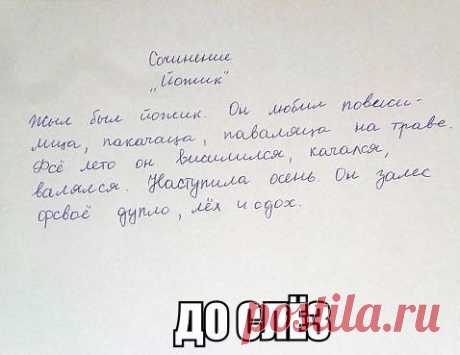 Сочинение
„Йожик"
Жыл был йожик. Он любил повеси-
лица, пакачаца, паваляца на траве.
Фсё лето он висилился, качался,
валялся. Наступила осень. Он залес
фсваё дупло, лёх и сдох.
ДО СЛЁЗ
postila.ru